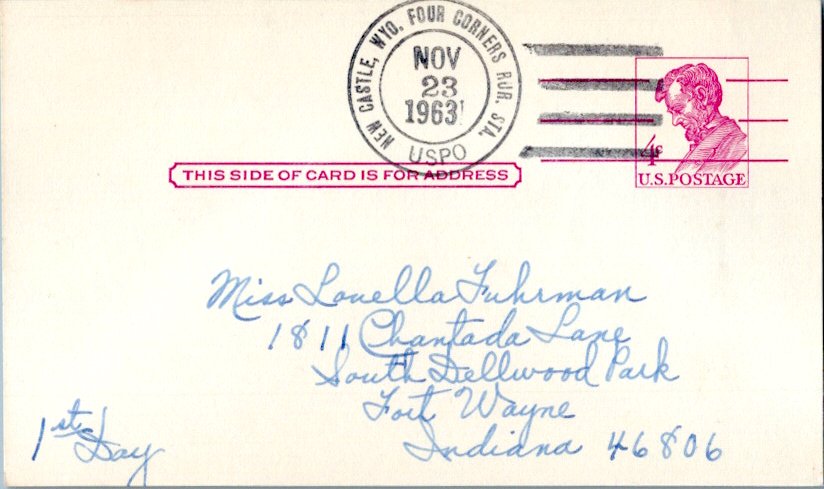 NEW CASTLE, WYO. FOUR CORNERS RUR. STA.
NOV
23
1963
USPO
4c
U.S.POSTAGE
THIS SIDE OF CARD IS FOR ADDRESS
Miss Louella Fuhrman
1811 Chantada Lane
South Dellwood Park
Fort Wayne
Indiana 46806
1st Day